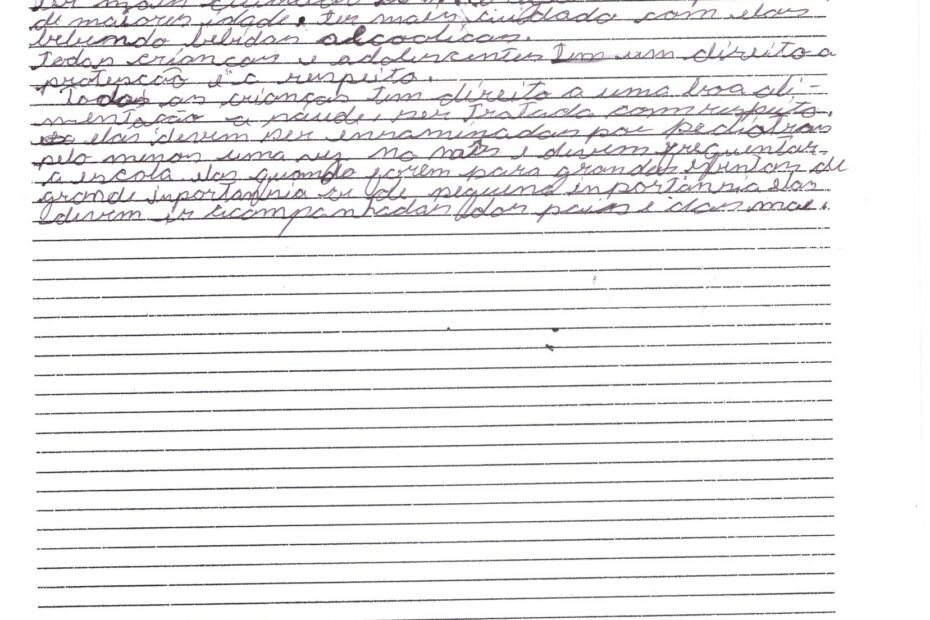 ter mais
de maiores idade. ter mais cuidado com elas
bebendo bebidas alcoolicas.
todas crianças e adolescentes Tem um direito a
proteção e a respeito.
Todas as crianças tem direito a uma boa ali-
mentação a saude, ser tratada com respeito.
elas devem ser enxaminadas por pediatras
pelo menos uma vez no mês e devem frequentar
a escola elas quando forem para grandes eventos de
grande inportânnia ou de pequena inportânnia elas
devem ir acompanhadas dos pais e das mae.